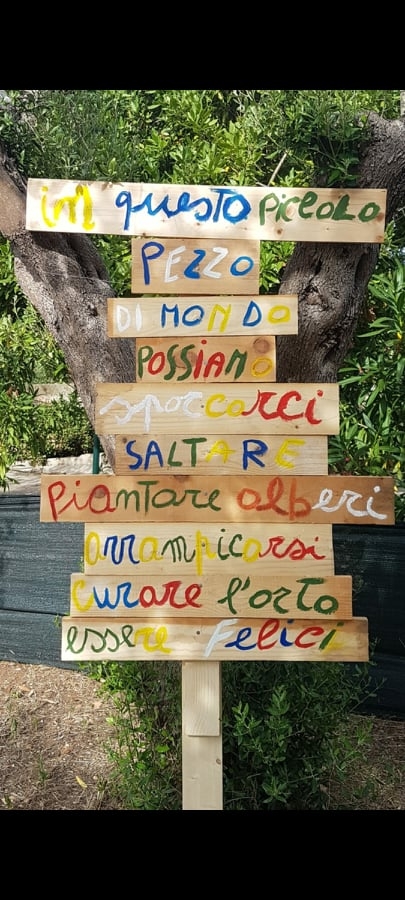 in questo piccolo
PEZZO
DI MONDO
POSSIAMO
sporcarci
SALTARE
piantare alberi
arrampicarsi
curare l'orto
essere Felici